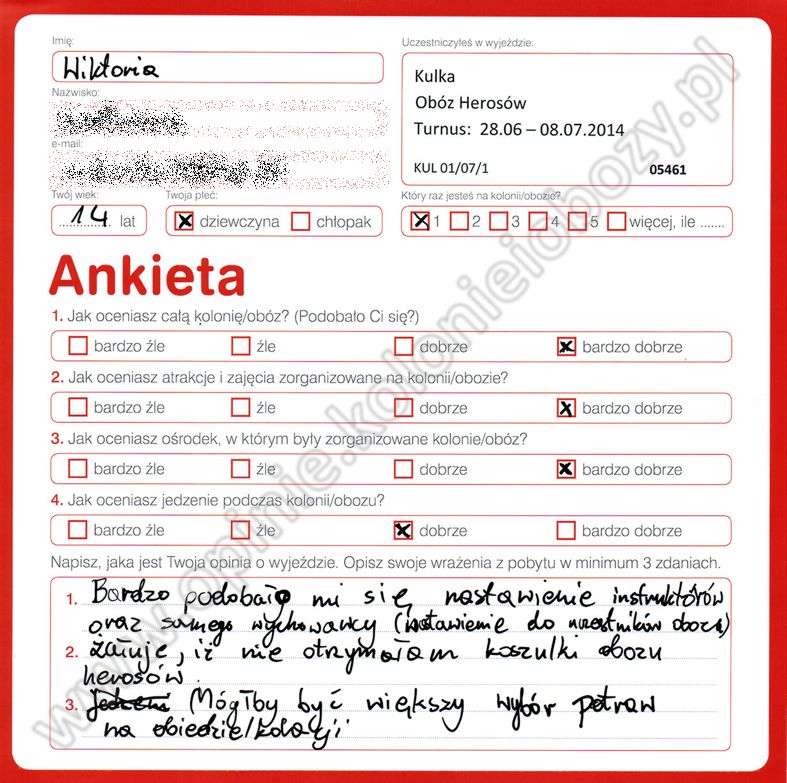 Imię:
Uczestniczyłeś w wyjeździe:
Wiktoria
Kulka
Obóz Herosów
Turnus: 28.06 – 08.07.2014
KUL 01/07/1 05461
Nazwisko:
e-mail:
Twój wiek: Twoja płeć: Który raz jesteś na kolonii/obozie?
14 lat dziewczyna chłopak 1 2 3 4 5 więcej, ile .......
Ankieta
1. Jak oceniasz całą kolonię/obóz? (Podobało Ci się?)
bardzo źle źle dobrze bardzo dobrze
2. Jak oceniasz atrakcje i zajęcia zorganizowane na kolonii/obozie?
bardzo źle źle dobrze bardzo dobrze
3. Jak oceniasz ośrodek, w którym były zorganizowane kolonie/obóz?
bardzo źle źle dobrze bardzo dobrze
4. Jak oceniasz jedzenie podczas kolonii/obozu?
bardzo źle źle dobrze bardzo dobrze
Napisz, jaka jest Twoja opinia o wyjeździe. Opisz swoje wrażenia z pobytu w minimum 3 zdaniach.
1. Bardzo podobało mi się nastawienie instruktórów
oraz samego wychowawcy (nastawienie do uczestników obozu)
2. żałuję, iż nie otrzymałam koszulki obozu
herosów.
3. Mógłby być większy wybór potraw
na obiedzie/kolacji
www.opinie.kolonieiobozy.pl